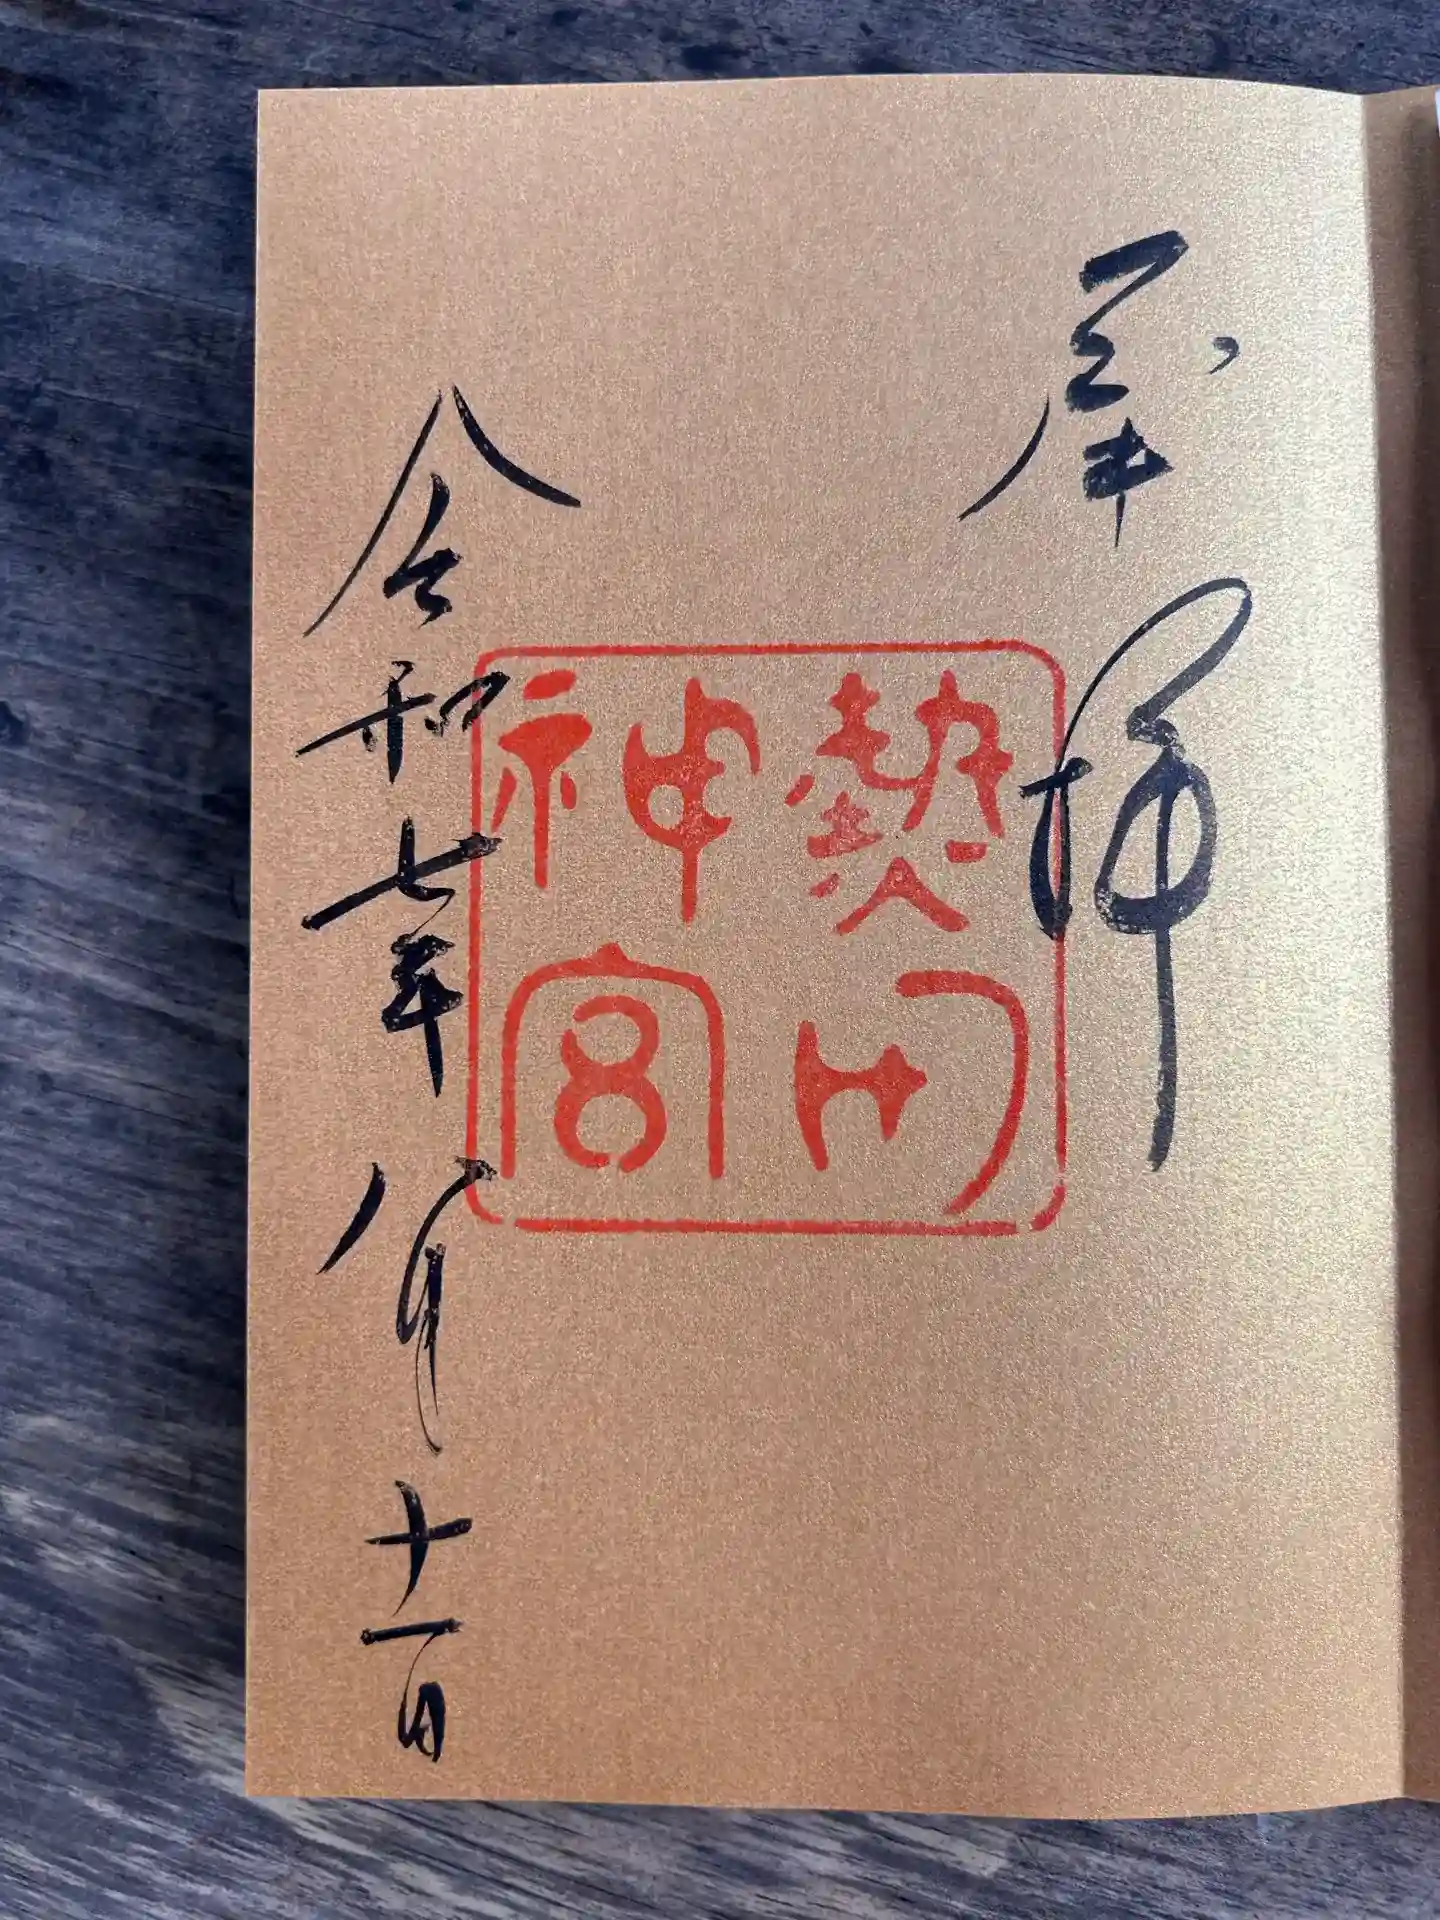 奉拝
熱田神宮
令和七年八月十一日